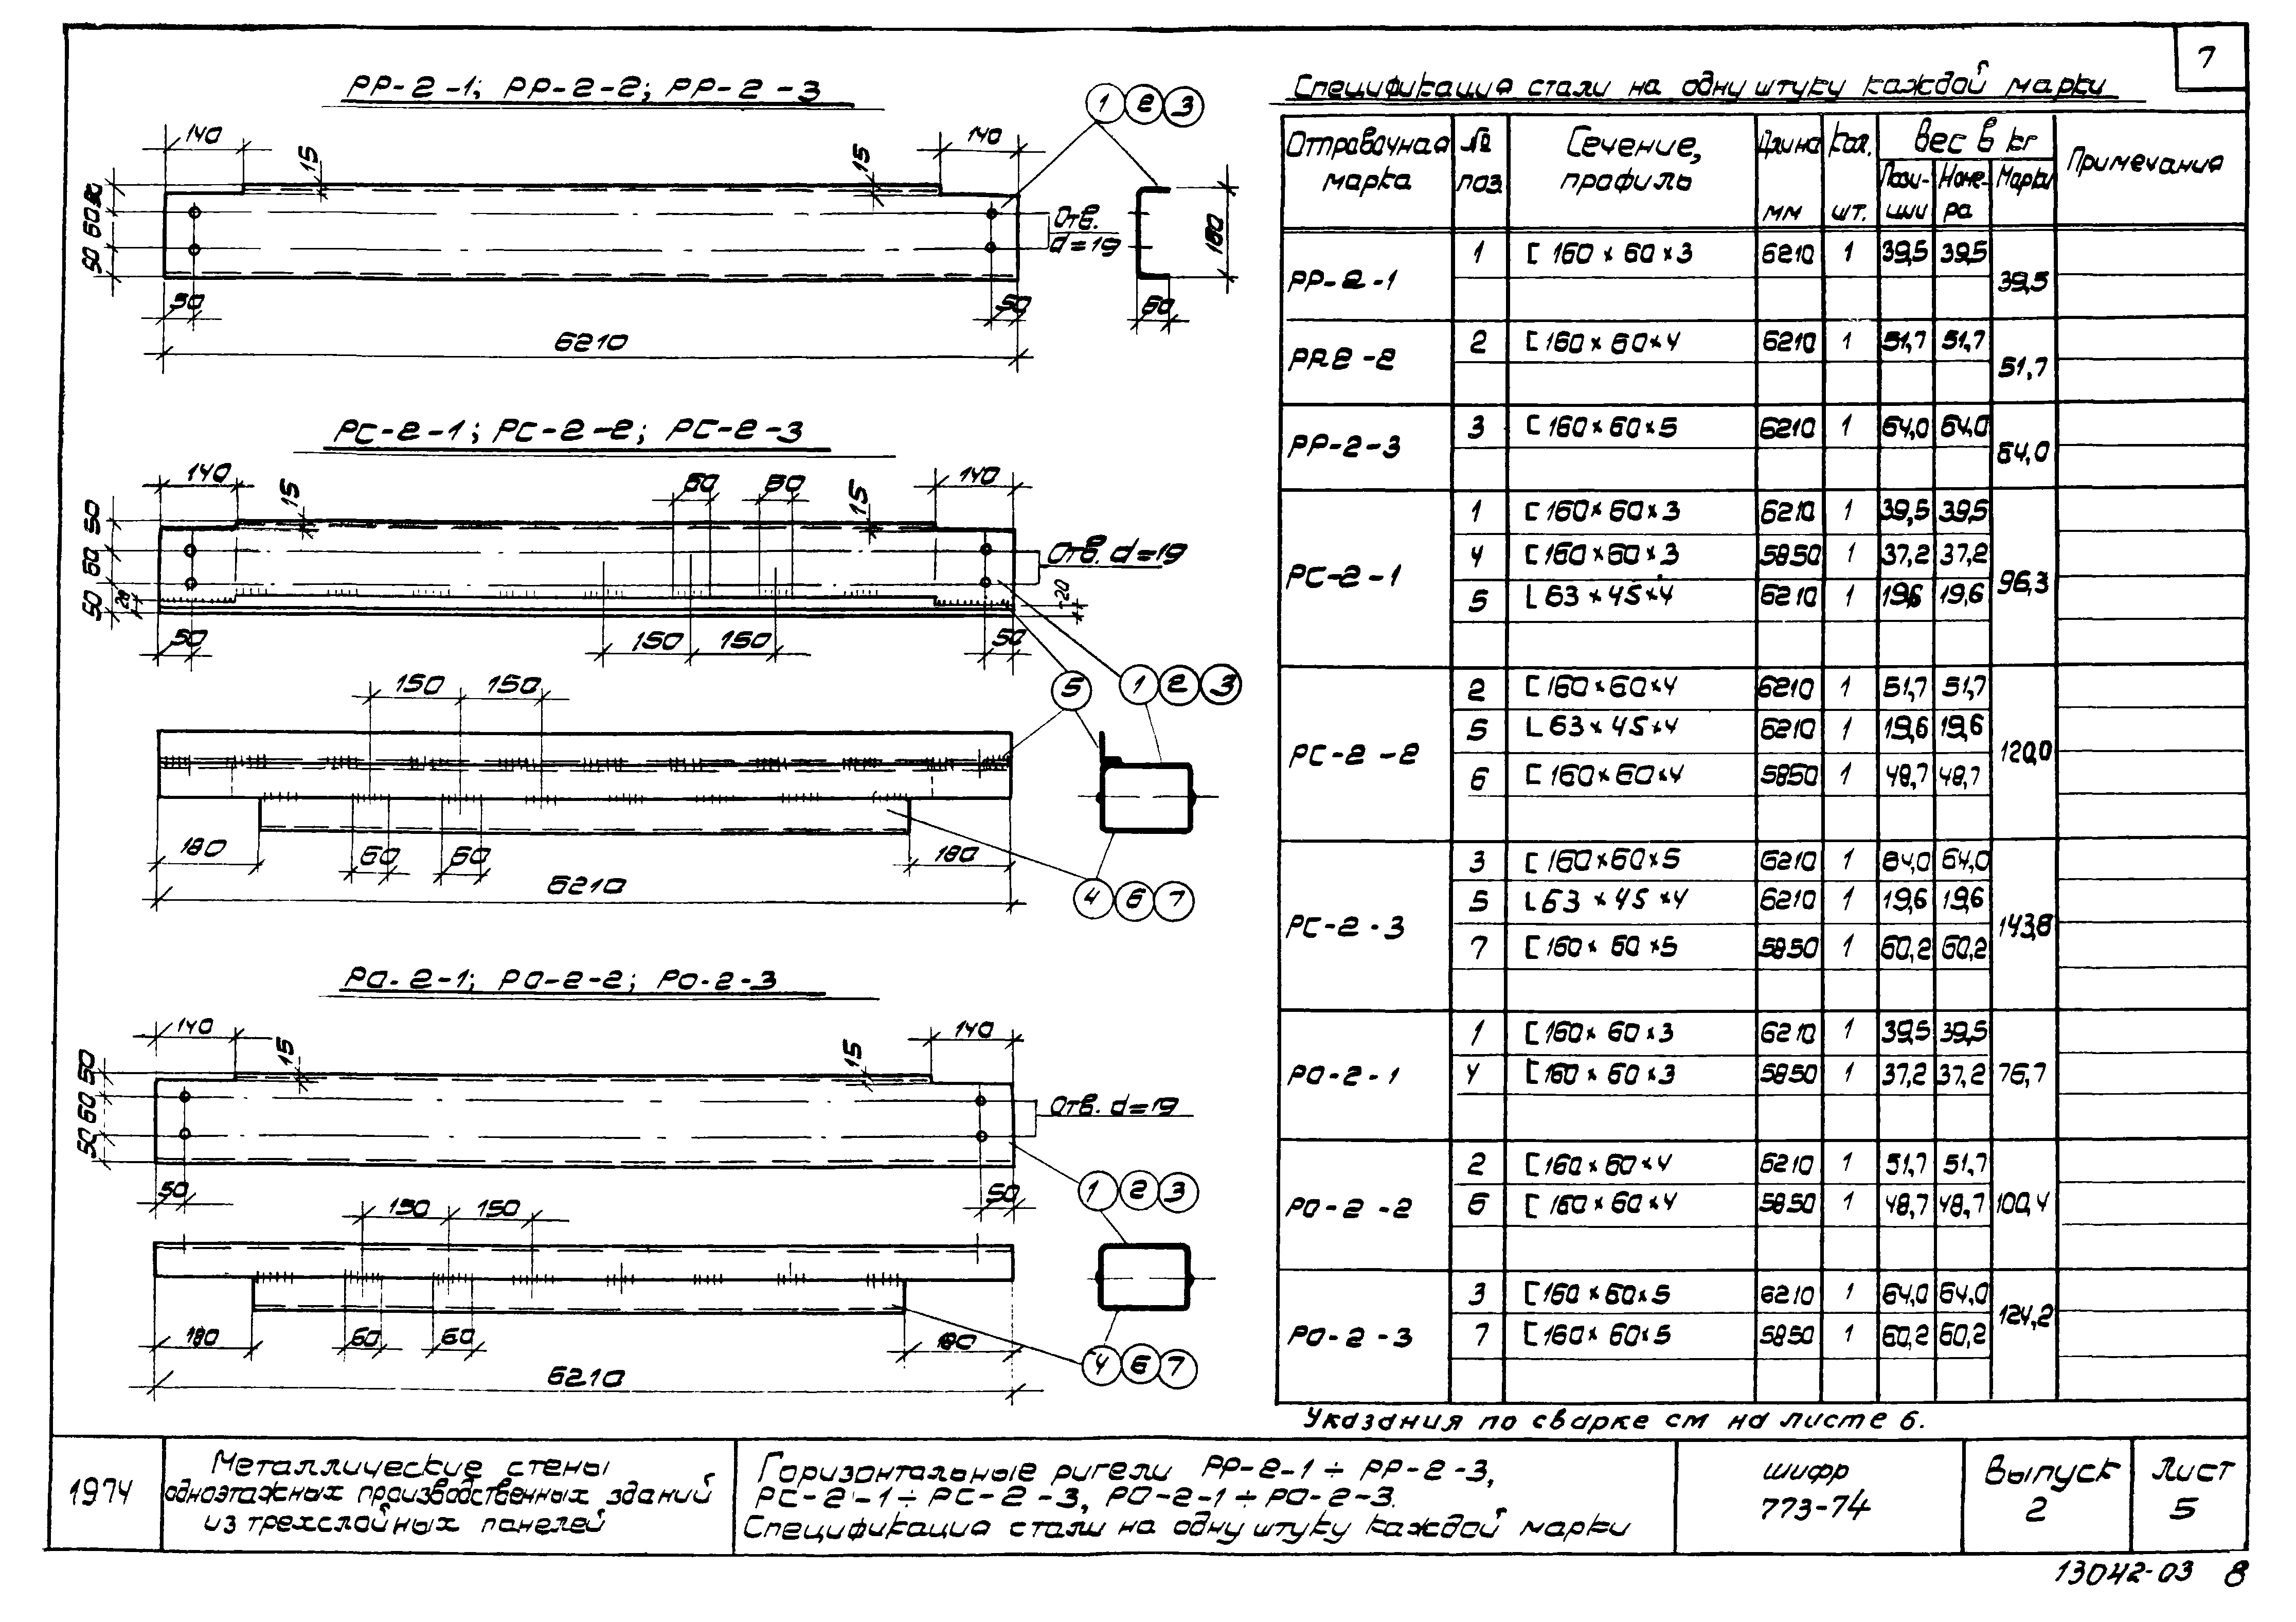 7
РР-2-1; РР-2-2; РР-2-3
1 2 3
140
15
15
140
50 60 50
Отв.
d=19
160
50
50
60
6210
РС-2-1; РС-2-2; РС-2-3
140
15
60
60
15
140
50 60 50
20
Отв. d=19
20
50
150
150
50
150
150
5
1 2 3
180
60
60
180
6210
4 6 7
РО-2-1; РО-2-2; РО-2-3
140
15
15
140
50 60 50
Отв. d=19
50
50
1 2 3
150
150
180
60
60
180
6210
4 6 7
Спецификация стали на одну штуку каждой марки
Отправочная марка | № поз | Сечение, профиль | Длина мм | Кол. шт. | Вес в кг | Примечания
Пози-ции | Номе-ра | Марки
РР-2-1 | 1 | [ 160 х 60 х 3 | 6210 | 1 | 39,5 | 39,5 | 39,5
РР-2-2 | 2 | [ 160 х 60 х 4 | 6210 | 1 | 51,7 | 51,7 | 51,7
РР-2-3 | 3 | [ 160 х 60 х 5 | 6210 | 1 | 64,0 | 64,0 | 64,0
РС-2-1 | 1 | [ 160 х 60 х 3 | 6210 | 1 | 39,5 | 39,5 | 96,3
4 | [ 160 х 60 х 3 | 5850 | 1 | 37,2 | 37,2
5 | L 63 х 45 х 4 | 6210 | 1 | 19,6 | 19,6
РС-2-2 | 2 | [ 160 х 60 х 4 | 6210 | 1 | 51,7 | 51,7 | 120,0
5 | L 63 х 45 х 4 | 6210 | 1 | 19,6 | 19,6
6 | [ 160 х 60 х 4 | 5850 | 1 | 48,7 | 48,7
РС-2-3 | 3 | [ 160 х 60 х 5 | 6210 | 1 | 64,0 | 64,0 | 143,8
5 | L 63 х 45 х 4 | 6210 | 1 | 19,6 | 19,6
7 | [ 160 х 60 х 5 | 5850 | 1 | 60,2 | 60,2
РО-2-1 | 1 | [ 160 х 60 х 3 | 6210 | 1 | 39,5 | 39,5 | 76,7
4 | [ 160 х 60 х 3 | 5850 | 1 | 37,2 | 37,2
РО-2-2 | 2 | [ 160 х 60 х 4 | 6210 | 1 | 51,7 | 51,7 | 100,4
6 | [ 160 х 60 х 4 | 5850 | 1 | 48,7 | 48,7
РО-2-3 | 3 | [ 160 х 60 х 5 | 6210 | 1 | 64,0 | 64,0 | 124,2
7 | [ 160 х 60 х 5 | 5850 | 1 | 60,2 | 60,2
Указания по сварке см на листе 6.
1974
Металлические стены
одноэтажных производственных зданий
из трехслойных панелей
Горизонтальные ригели РР-2-1 ÷ РР-2-3,
РС-2-1 ÷ РС-2-3, РО-2-1 ÷ РО-2-3.
Спецификация стали на одну штуку каждой марки
шифр
773-74
Выпуск
2
Лист
5
13042-03 8